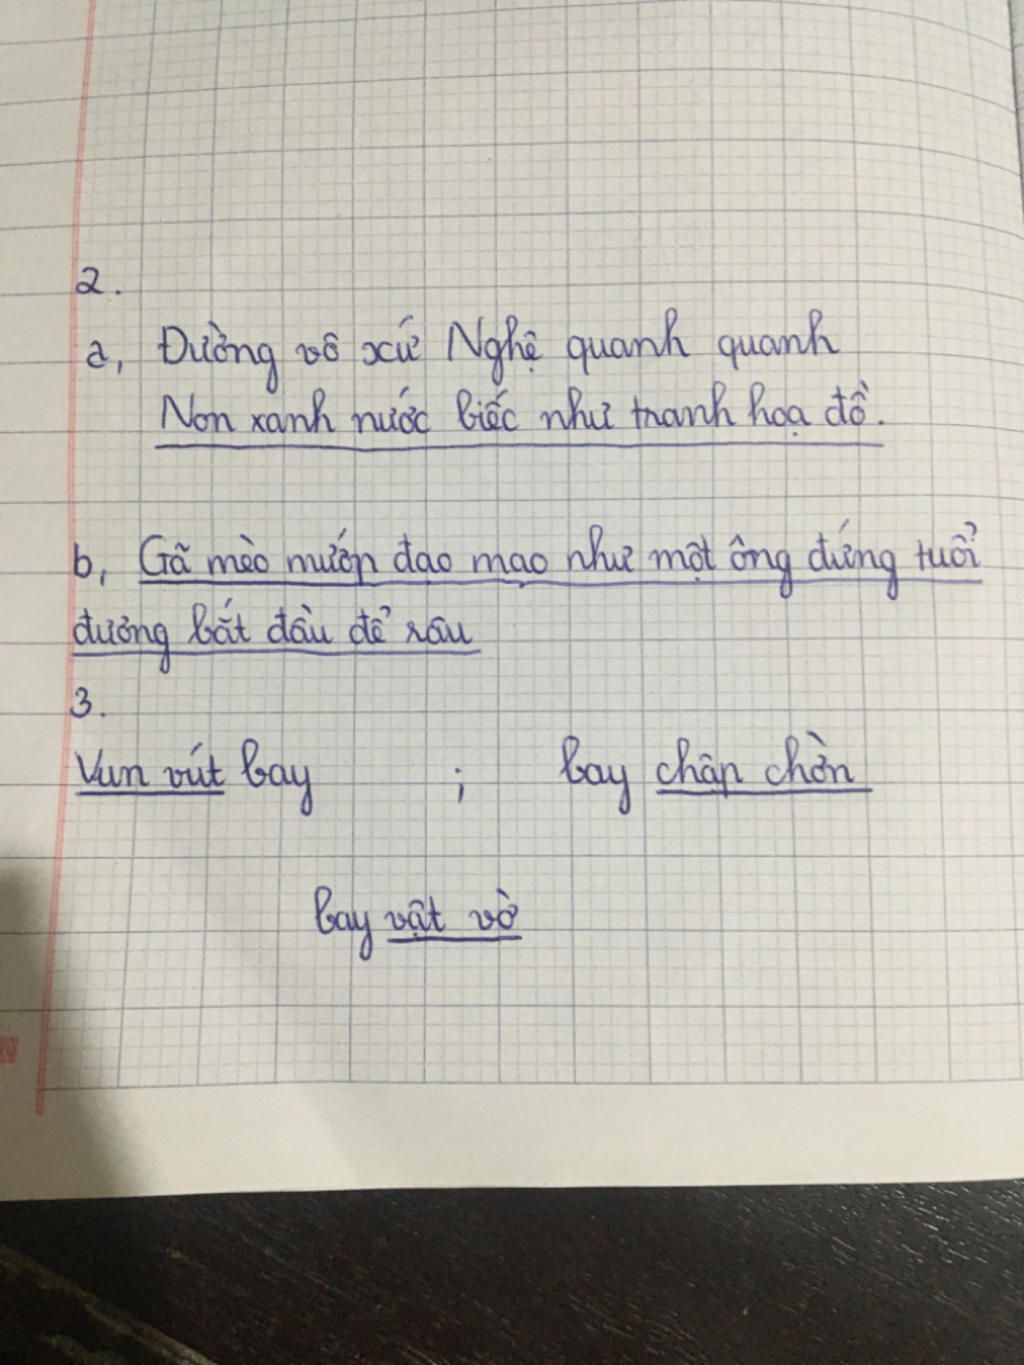 2.
a, Đường vô xứ Nghệ quanh quanh
Non xanh nước biếc như tranh hoạ đồ.
b, Gã mèo mướp đạo mạo như một ông đứng tuổi
đương bắt đầu để râu
3.
Vun vút bay ; bay chập chờn
bay vật vờ